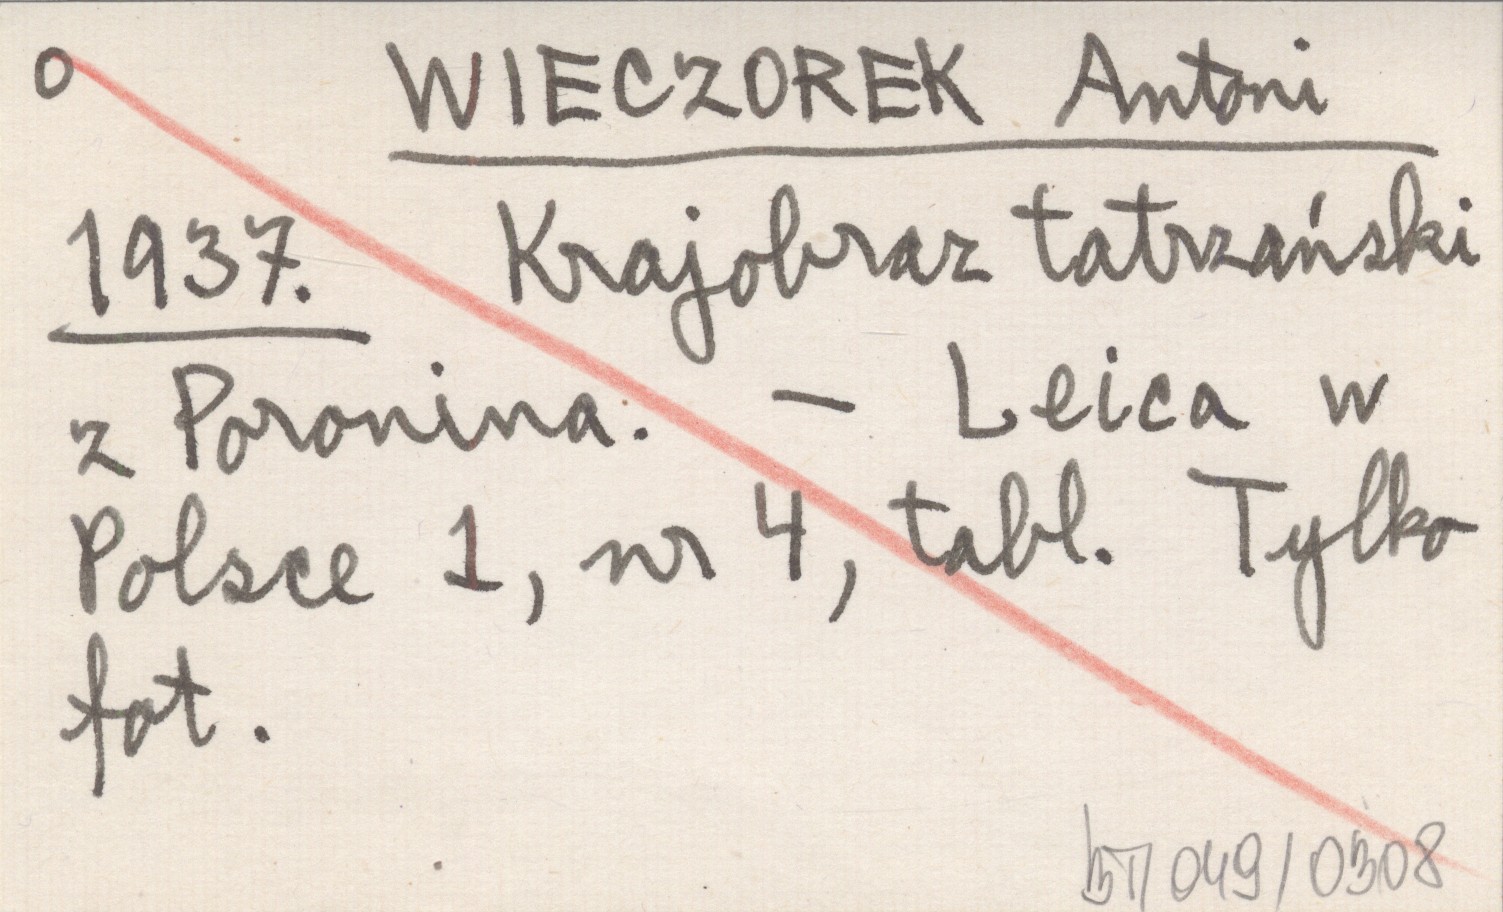 O WIECZOREK Antoni
1937. Krajobraz tatrzański
z Poronina. – Leica w
Polsce 1, nr 4, tabl. Tylko
fot.
049/0308